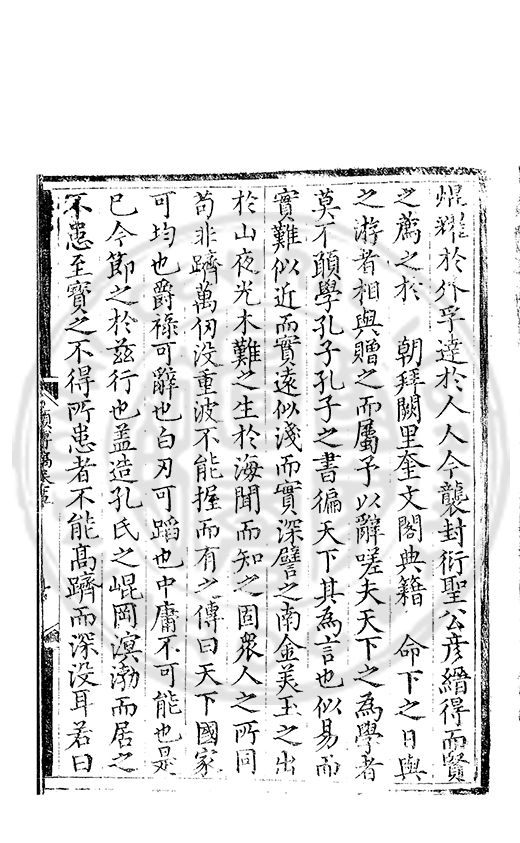 焜耀於外孚達於人人今襲封衍聖公彦縉得而賢
之薦之於　朝拜闕里奎文閣典籍　命下之日與
之游者相與贈之而屬予以辭嗟夫天下之為學者
莫不願學孔子孔子之書徧天下其為言也似易而
實難似近而實遠似淺而實深譬之南金美玉之出
於山夜光木難之生於海聞而知之固衆人之所同
苟非躋萬仞没重波不能握而有之傳曰天下國家
可均也爵祿可辭也白刃可蹈也中庸不可能也是
已今節之於兹行也盖造孔氏之崐岡溟渤而居之
不患至寳之不得所患者不能髙躋而深没耳若曰